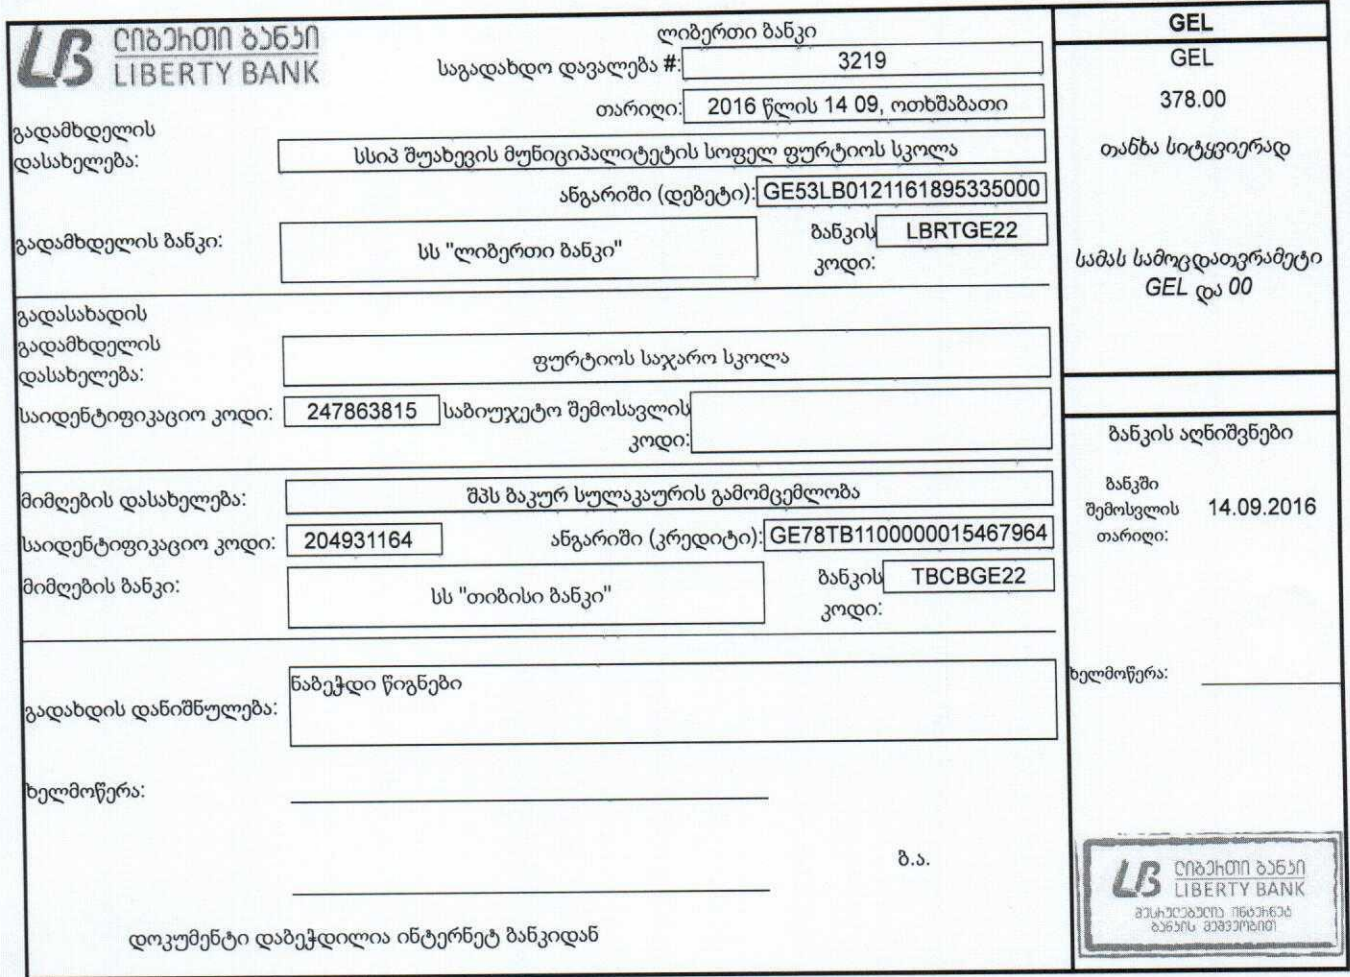 ლიბერთი ბანკი
LIBERTY BANK
ლიბერთი ბანკი
საგადახდო დავალება #: 3219
თარიღი: 2016 წლის 14 09, ოთხშაბათი
გადამხდელის
დასახელება: სსიპ შუახევის მუნიციპალიტეტის სოფელ ფურტიოს სკოლა
ანგარიში (დებეტი): GE53LB0121161895335000
გადამხდელის ბანკი: სს "ლიბერთი ბანკი" ბანკის კოდი: LBRTGE22
გადასახადის
გადამხდელის
დასახელება: ფურტიოს საჯარო სკოლა
საიდენტიფიკაციო კოდი: 247863815 საბიუჯეტო შემოსავლის
კოდი:
მიმღების დასახელება: შპს ბაკურ სულაკაურის გამომცემლობა
საიდენტიფიკაციო კოდი: 204931164 ანგარიში (კრედიტი): GE78TB1100000015467964
მიმღების ბანკი: სს "თიბისი ბანკი" ბანკის კოდი: TBCBGE22
გადახდის დანიშნულება: ნაბეჭდი წიგნები
ხელმოწერა:
ბ.ა.
დოკუმენტი დაბეჭდილია ინტერნეტ ბანკიდან
GEL
GEL
378.00
თანხა სიტყვიერად
სამას სამოცდათვრამეტი
GEL და 00
ბანკის აღნიშვნები
ბანკში
შემოსვლის 14.09.2016
თარიღი:
ხელმოწერა:
ლიბერთი ბანკი
LIBERTY BANK
შესრულებულია ინტერნეტ
ბანკის მეშვეობით